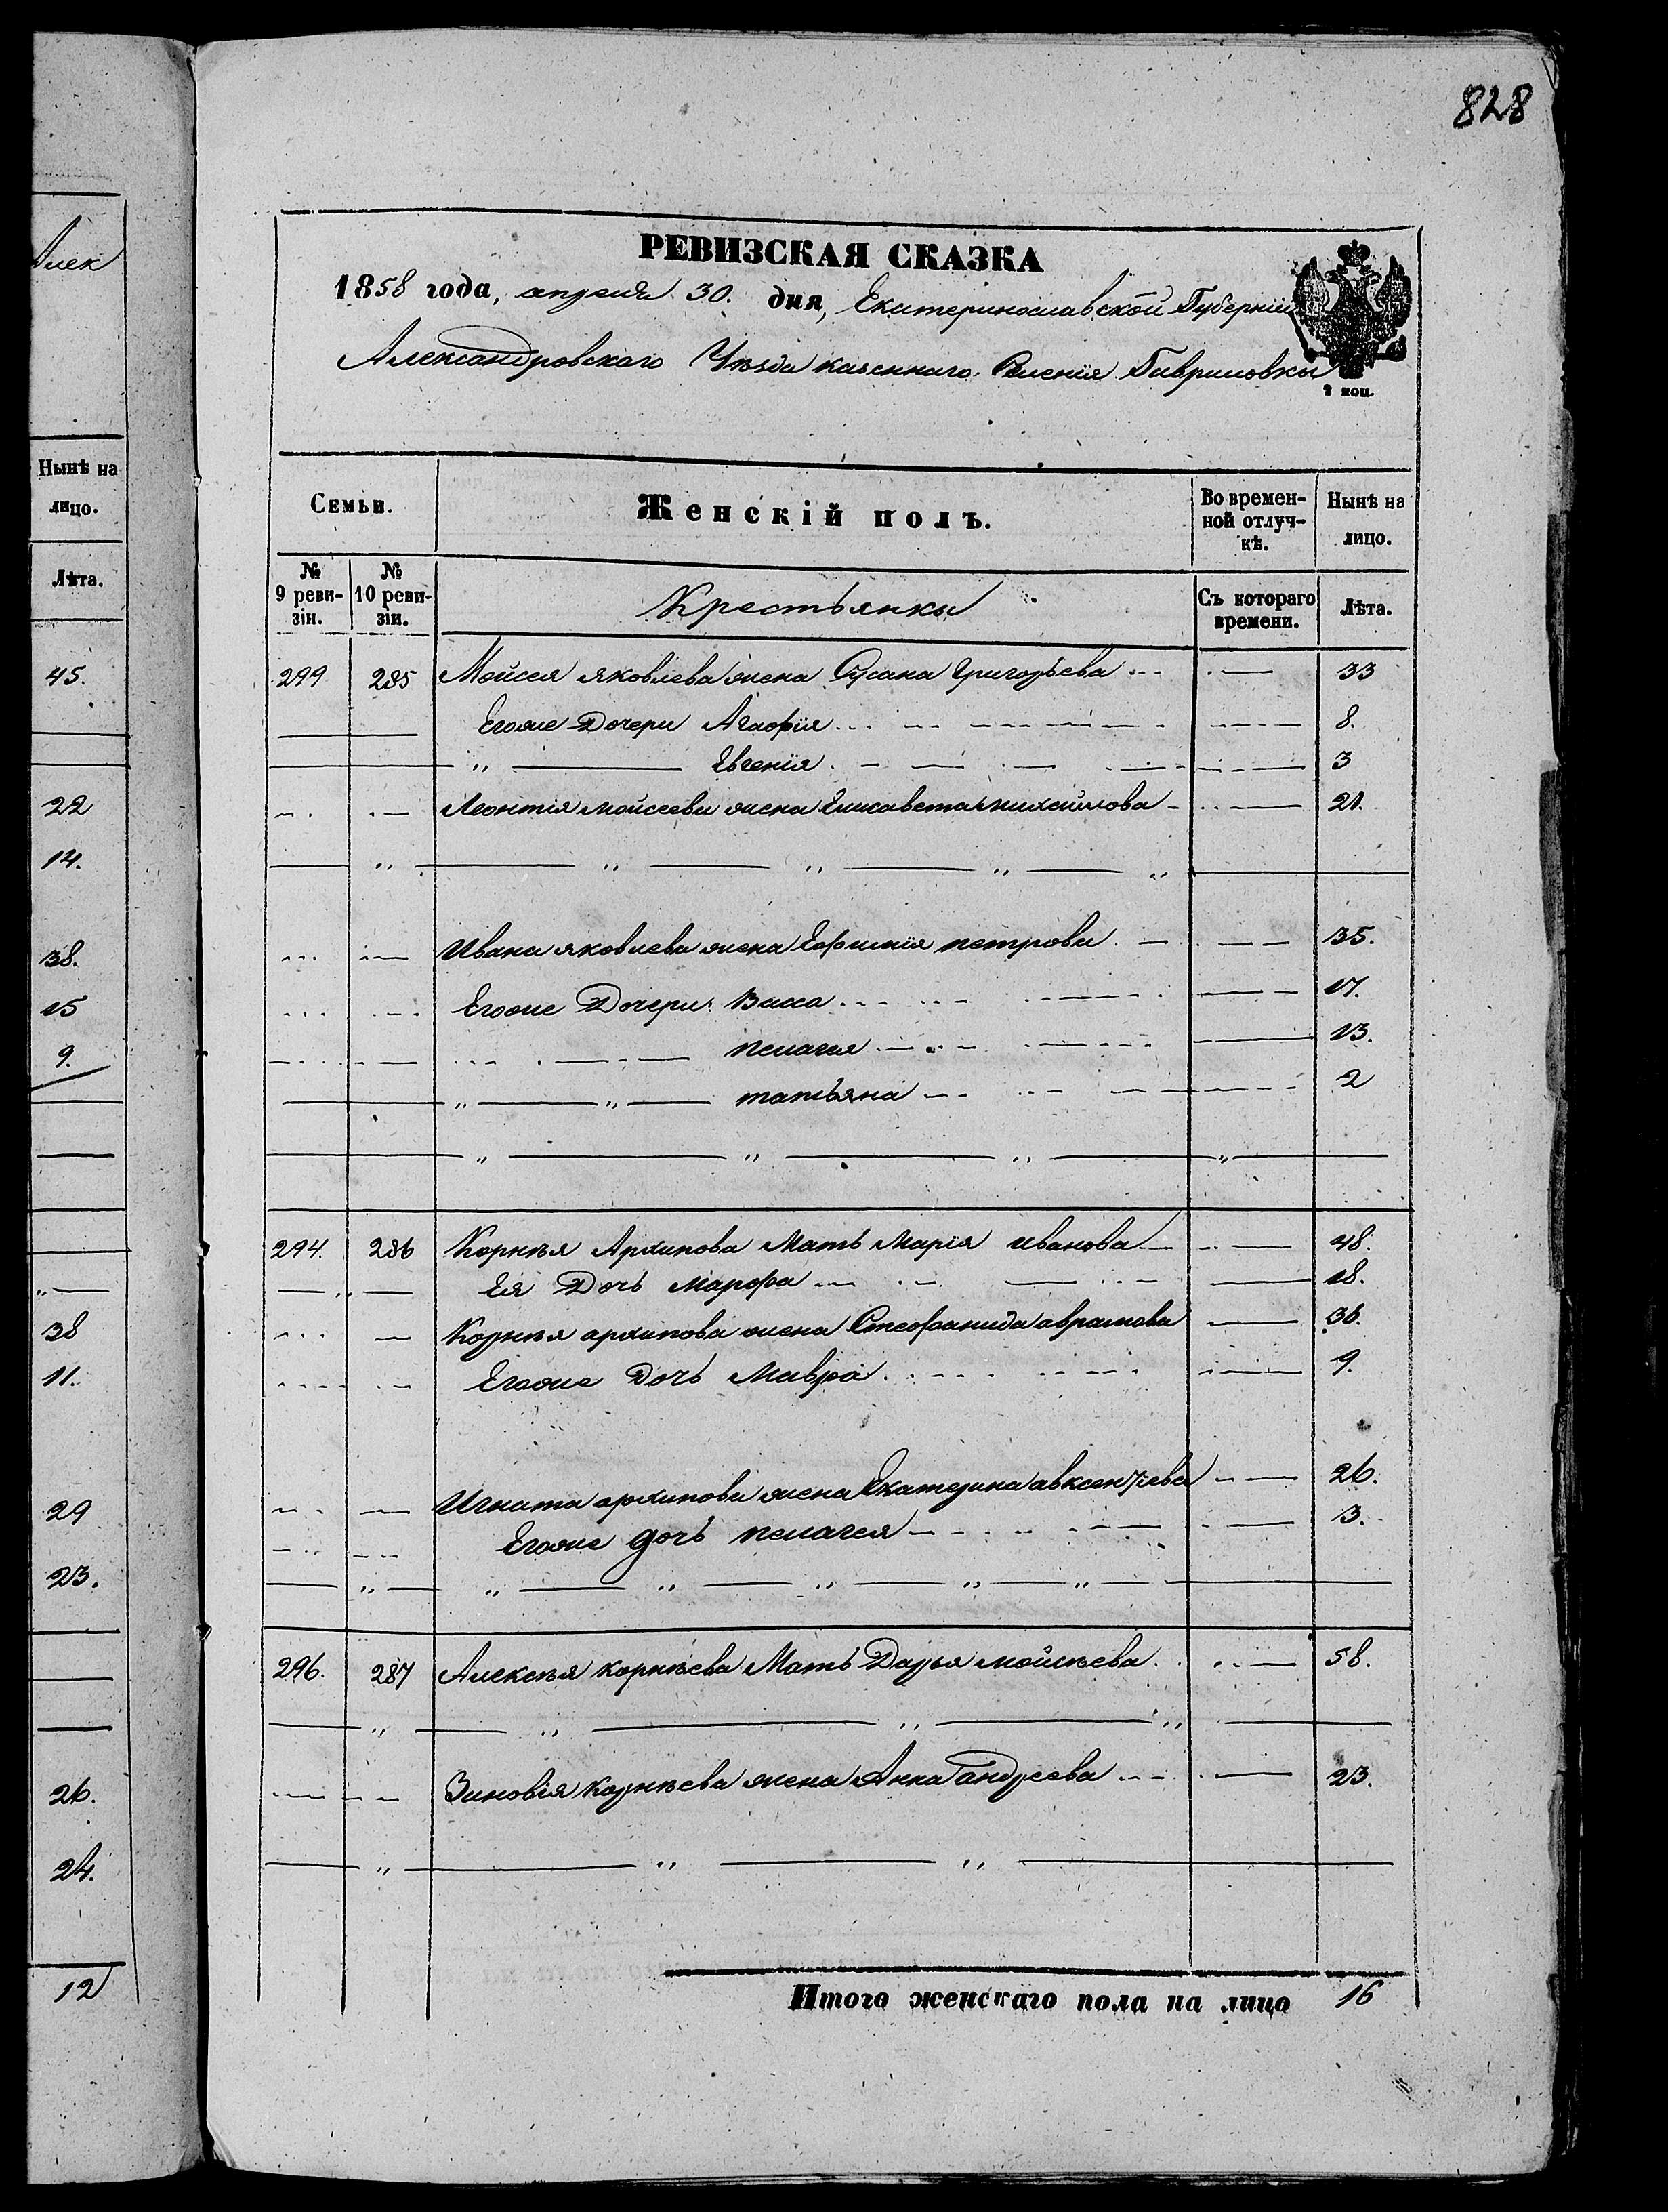 828
Алек
Нынѣ на
лицо.
Лѣта.
45.
22
14.
38.
15
9.
38
11.
29
23.
26.
24.
12
РЕВИЗСКАЯ СКАЗКА
1858 года, апреля 30. дня, Екатеринославской Губерніи
Александровского Уѣзда казеннаго Селенія Гавриловки
2 коп.
Семьи. Женскій полъ. Во времен-ной отлуч-кѣ. Нынѣ на лицо.
№ 9 реви-зіи. № 10 реви-зіи. Крестьянки Съ котораго времени. Лѣта.
299 285 Мойсея яковлева жена Сусана Григорьева 33
Егоже Дочери Агафія 8.
" Евгенія 3
Леонтія мойсеева жена Елисавета михайлова 21.
Ивана яковлева жена Ефимія петрова 35.
Егоже Дочери Васса 17.
пелагея 13.
" " татьяна 2
294. 286 Корнѣя Архипова Мать Марія иванова 48.
Ея Дочь марфа 18.
Корнѣя архипова жена Стефанида аврамова 36.
Егоже Дочь Мавра 9.
Игната архипова жена Екатерина авксентіева 26.
Егоже дочь пелагея 3.
296. 287 Алексѣя корнѣева Мать Дарья мойсѣева 58.
Зиновія Корнѣева жена Анна андреева 23.
Итого женскаго пола на лицо 16